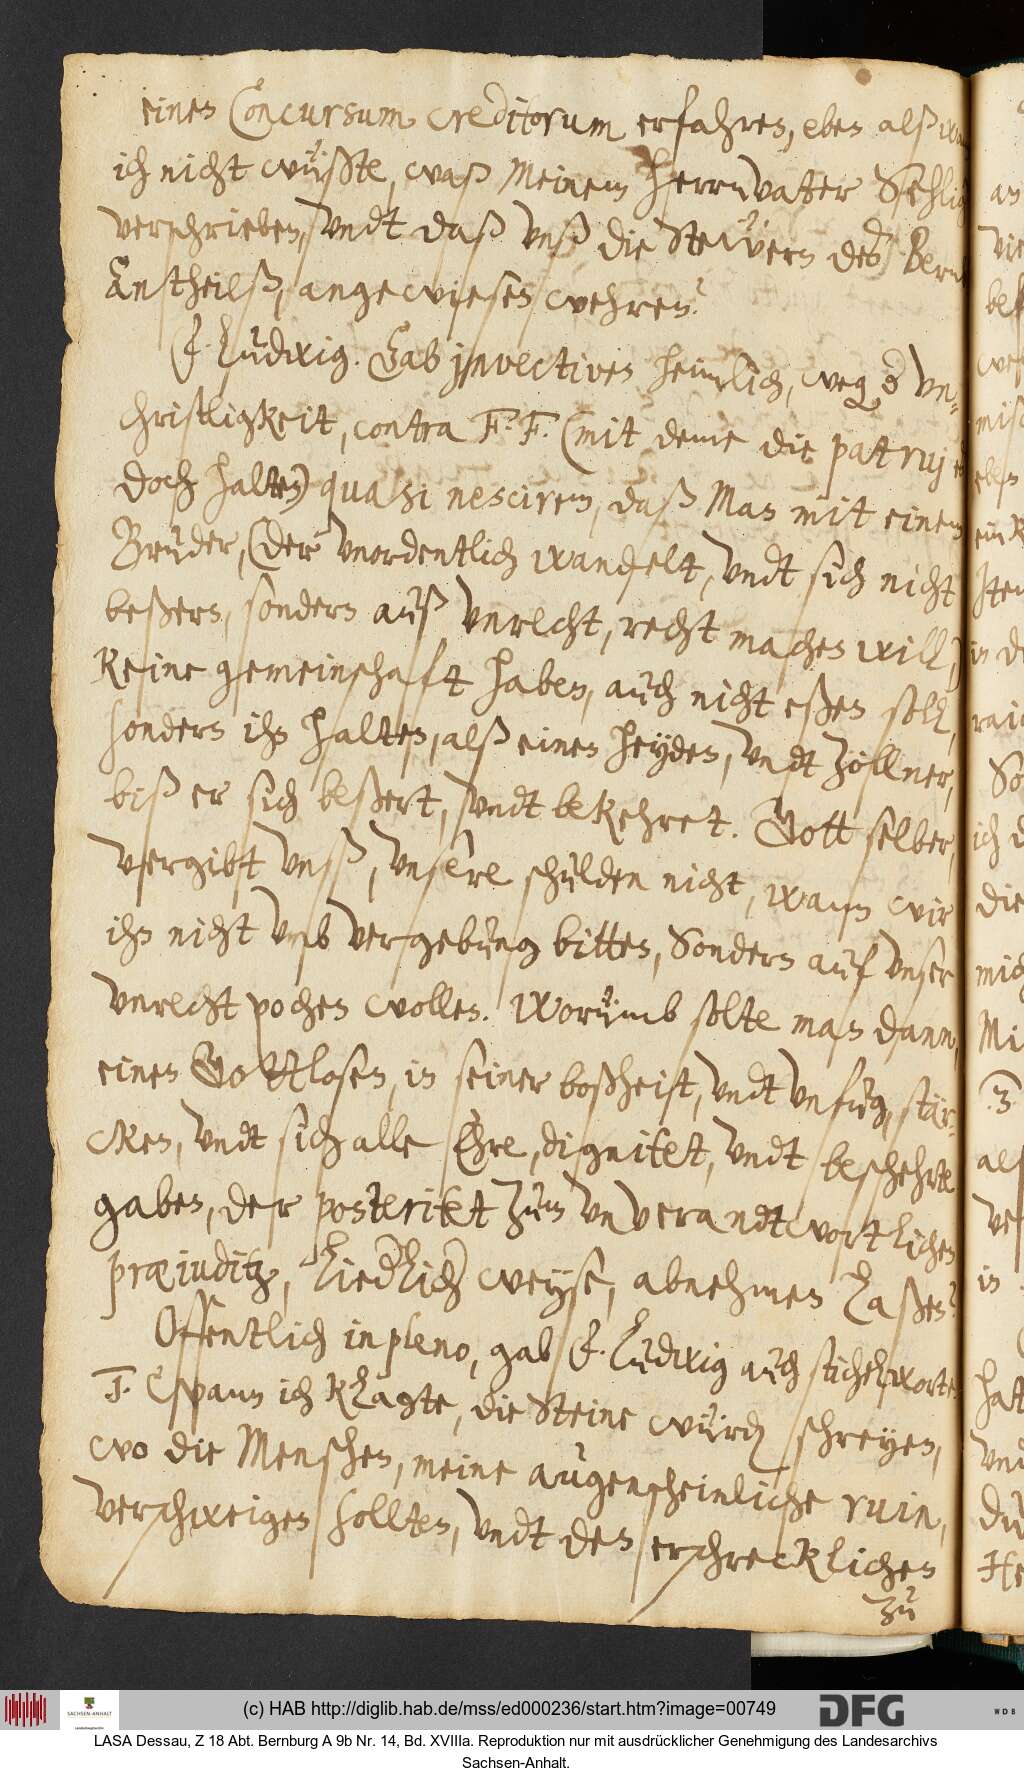 einen Concursum creditorum erfahren, eben alß
ich nicht wüste, waß Meinem Herrnvatter Sehlig
verschrieben, undt daß unß die Steüern deß
Antheilß, angewiesen wehren?
F. Ludwig. Gab jnvectiven heimlich, weg d un-
christligkeit, contra F. F. (mit deme die patruj
doch halten) quasi nescirem, daß Man mit einem
Bruder, (der unordentlich wandelt, undt sich nicht
beßern, sondern auß unrecht, recht machen will,)
Keine gemeinschaft haben, auch nicht eßen soll,
sondern ihn halten, alß einen Heyden, undt Zöllner,
biß er sich beßert, undt beKehret. Gott selber,
vergibt unß, unsere schulden nicht, wann wir
ihn nicht umb vergebung bitten, Sondern auf unser
unrecht pochen wollen. Worümb solte man dann,
einen Gottlosen, in seiner boßheitt, undt unfug, stär-
cken, undt sich alle Ehre, dignitet, undt beschehrte
gaben, der posteritet zum unverandtwortlichen
præjuditz, Liedlich weyse, abnehmen Laßen?
Offentlich in pleno, gab F. Ludwig auch stichelworte,
F. C. wann ich Klagte, die Steine würden schreyen,
wo die Menschen, meine augenscheinliche ruin,
verschweigen sollten, undt den erschrecklichen
zu
(c) HAB http://diglib.hab.de/mss/ed000236/start.htm?image=00749
SACHSEN-ANHALT
DFG
WDB
LASA Dessau, Z 18 Abt. Bernburg A 9b Nr. 14, Bd. XVIIIa. Reproduktion nur mit ausdrücklicher Genehmigung des Landesarchivs
Sachsen-Anhalt.